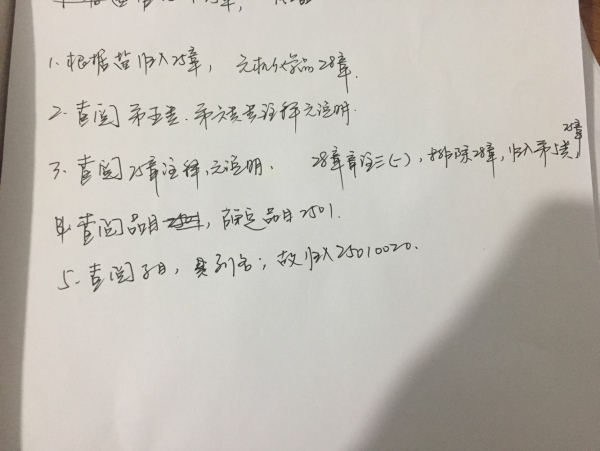 1. 根据盐归入25章, 无机化学品28章.
2. 查阅第五类、第六类类注释无说明.
25章
3. 查阅25章注释,无说明. 28章章注三(一),排除28章,归入第5类,
4. 查阅品目2501, 确定品目2501.
5. 查阅子目, 具列名; 故归入25010020.